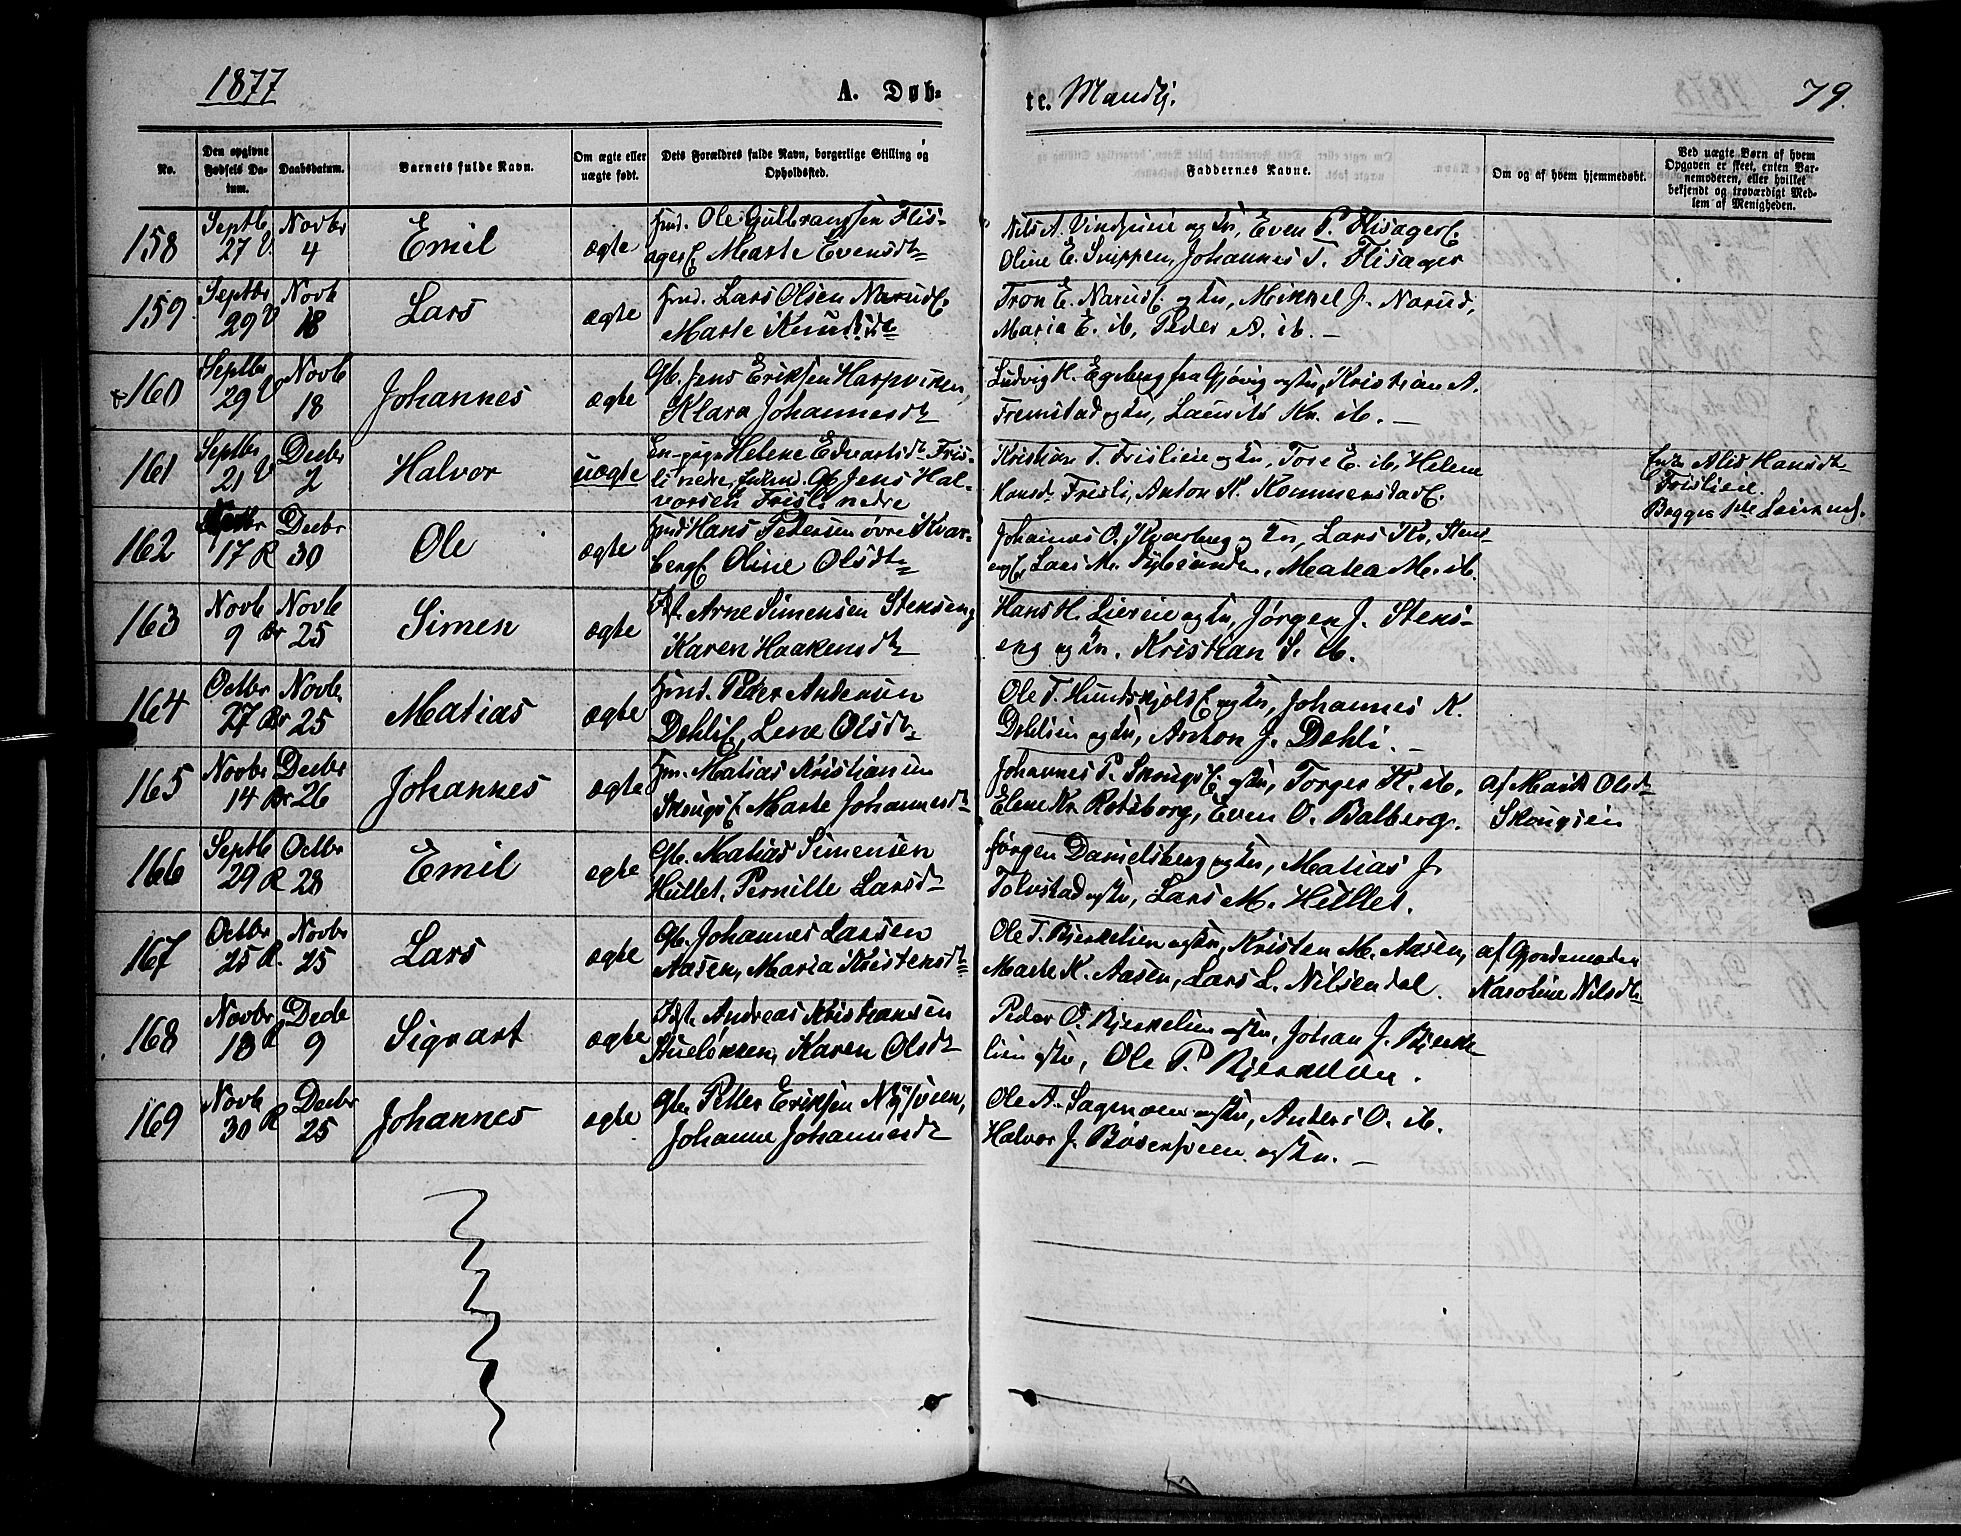 1877
A. Døb-
te. Mandkj.
79.
No.
Den opgivne Fødsels Da-tum.
Daabsdatum.
Barnets fulde Navn.
Om ægte eller uægte født.
Dets Forældres fulde Navn, borgerlige Stilling og Opholdssted.
Faddernes Navne.
Om og af hvem hjemmedøbt.
Ved uægte Børn af hvem Opgaven er skeet, enten Bar-nemoderen, eller hvilket bekjendt og troværdigt Med-lem af Menigheden.
158
Septb 27 V.
Novbr 4
Emil
ægte
Hmd. Ole Gulbrandsen Flis-
agerE. Marte Evensdt
Nils A. og Kn, Even P. FlisagerE.
Oline E. Snippen, Johannes T. Flisager
159
Septbr 29 V
Novb 18
Lars
ægte
Hmd. Lars Olsen NarudE.
Marte Knudsdt
Tron E. NarudE. og Kn, Mikkel J. Narud,
Maria E. ib, Peder A. ib. —
160
Septbr 29 V
Novb 18
Johannes
ægte
Gb. Jens Eriksen Haspviken,
Klara Johannesdt
Ludvig H. Egeberg fra Gjøvig og Kn, Kristian A.
Fremstad og Kn, Laurits Kn. ib. —
161
Septbr 21 V
Decbr 2
Halvor
uægte
En-pige Helene Edvartsdt Fris-
li nedre, Jens Hal-
vorsen Frisli nedre
Kristian T. Frislieie og Kn, Tore E. ib, Helene
Hansdt Frisli, Anton K. KommenstadE.
Alis Hansdt
Frislieie.
Begges 1ste Leierm.
162
17 R
Decbr 30
Ole
ægte
Hmd Hans Pedersen øvre Kvar-
bergE. Oline Olsdt
Johannes O. Kvarberg og Kn, Lars Kr. Stens-
engE, Lars M. , Matea M. ib.
163
Novb 9 Br
Novb 25
Simen
ægte
Arne Simensen Stenseng
Karen Haakensdt
Hans H. Lieeie og Kn, Jørgen J. Stens-
eng og Kn. Kristian S. ib.
164
Octbr 27 Br
Novb. 25
Matias
ægte
Hmd. Peder Andersen
DehliE, Lene Olsdt
Ole T. HundskjoldE og Kn, Johannes K.
Dehlien og Kn, Anton J. Dehli. —
165
Novbr 14 Br
Decbr 26
Johannes
ægte
Hm. Matias Kristiansen
SkougsE. Marte Johannesdt
Johannes P. SkougsE. og Kn, Torger H. ib,
Elene Kr. Rotsborg, Even O. Balberg.
af Marit Olsdt
Skougseie
166
Septb 29 R
Octbr 28
Emil
egte
Gb. Matias Simensen
Hullet, Pernille Larsdt
Jørgen Danielsberg og Kn, Matias J.
Tolvstad og Kn, Lars M. Hullet.
167
Octbr 25 R.
Novbr 25
Lars
ægte
Gb. Johannes Larsen
Aasen, Maria Kristensdt
Ole T. Bjerkelien og Kn, Kristen M. Aasen,
Marte K. Aasen, Lars L. Nilsendal.
af Gjordemoder
Karoline Nilsdt
168
Novbr 18 R
Decb 9
Sigvart
ægte
Andreas Kristiansen
Stueløkken, Karen Olsdt
Peder O. Bjerkelien og Kn, Johan J. Bjerke-
lien og Kn, Ole P. Bjerkelien.
169
Novb 30 R
Decbr 25
Johannes
egte
Gbr Petter Eriksen Nysveen,
Johanne Johannesdt
Ole A. Sagmoen og Kn, Anders O. ib.
Halvor J. Bøsensveen og Kn. —